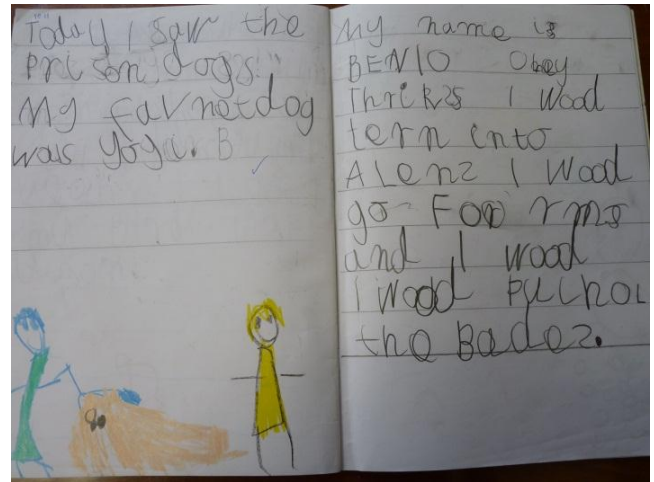 Today I saw the
prison dogs!!
My favnetdog
was yogi. B
My name is
BEN10 Obey
ThricR25 I wood
tern into
ALenz I wood
go Foo rms
and I wood
I wood
the Badez.